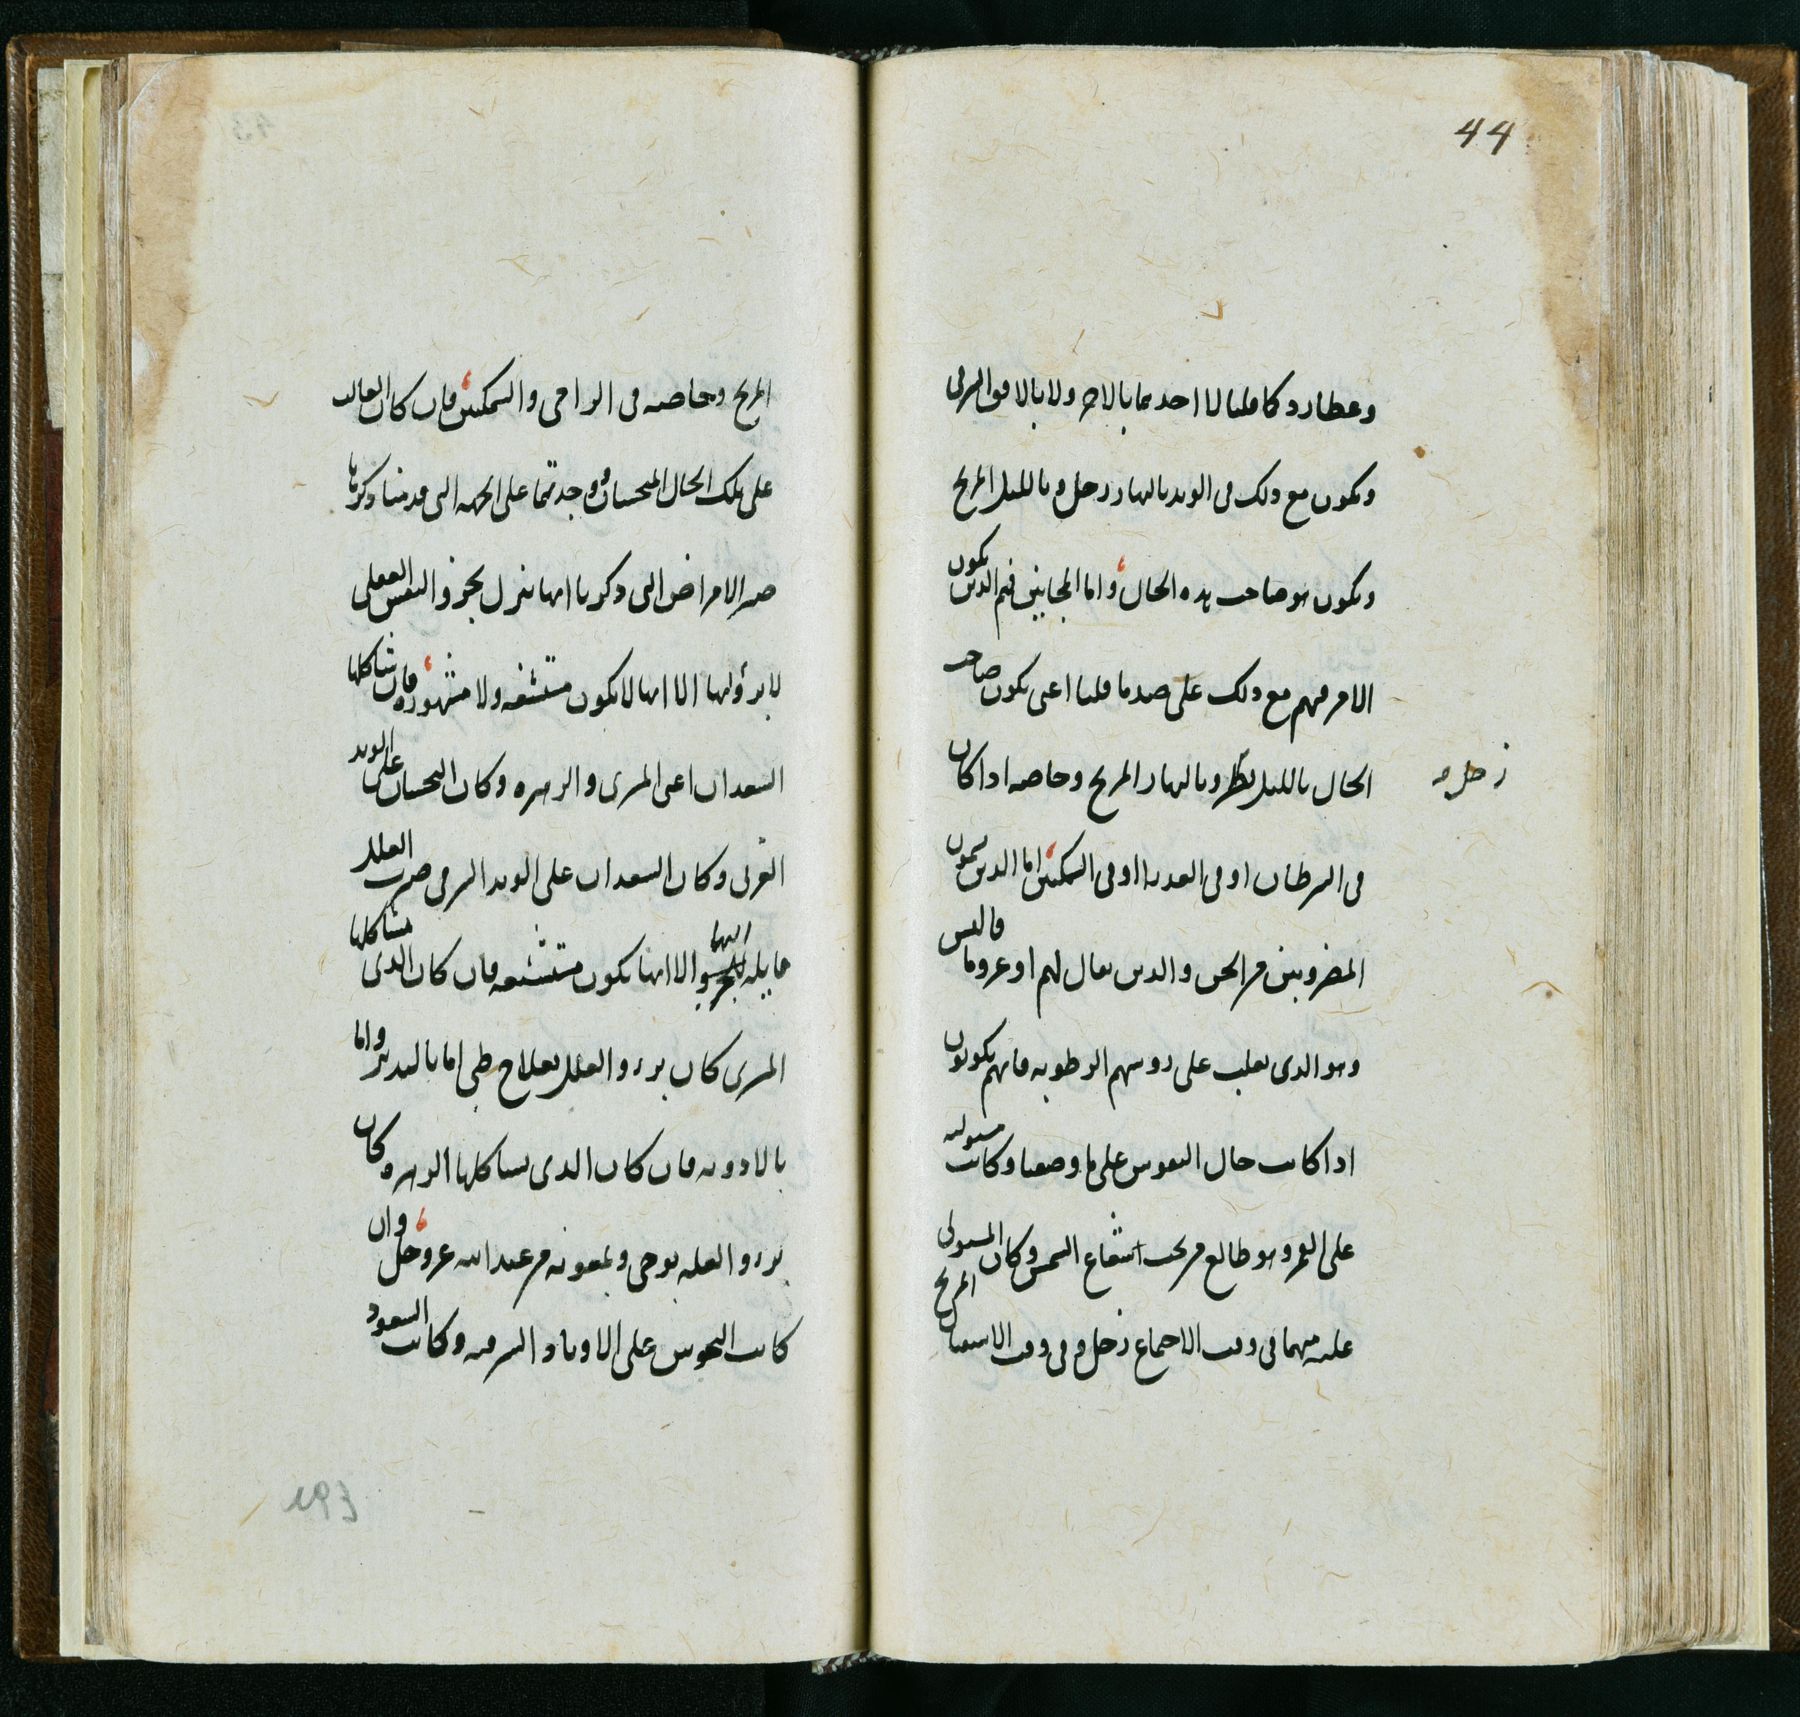 44
وعطارد كما قلنا لا احدهما بالاخر ولا بالافق الشرقى
ويكون مع ذلك فى الوتد بالنهار زحل وبالليل المريخ
ويكون هو صاحب هذه الحال واما المجانين فهم الذين يكون
الامر فيهم مع ذلك على ضد ما قلنا اعنى يكون صاحب
الحال بالليل ينظر وبالنهار المريخ وخاصه اذا كان
زحل
فى السرطان او فى العذرا او فى السمكتين اما الذين يكون
المضروبين من الجن والذين يقال لهم
وهو الذى يغلب على روسهم الرطوبه فانهم يكونون
اذا كانت حال النحوس على ما وصفنا وكانت مستوليه
على القمر وهو طالع من تحت الشعاع الشمس وكان المستولى
عليه منهما فى وقت الاجتماع زحل وفى وقت الاستقبال المريخ
المريخ وخاصه فى الرامى والسمكتين فان كان الغالب
على تلك الحال النحسان وجدتهما على الجهه التى قدمنا ذكرها
من الامراض التى ذكرنا انها تنزل بجزو النفس العقلى
لا برؤ لها الا انها لا تكون مستشنعه ولا مشهوره فان شاكلها
السعدان اعنى المشترى والزهره وكان النحسان على الوتد
الغربى وكان السعدان على الوتد الشرقى صيرت العلل
قابله للبرو الا انها تكون مستشنعه فان كان الذى مشاكلها
المشترى كان برء والعلل بعلاج طبى اما بالتدبير واما
بالادويه فان كان الذى يشاكلها الزهره كان
برء والعله بوحى وبمعونه من عند الله عز وجل وان
كانت النحوس على الاوتاد الشرقيه وكانت السعود